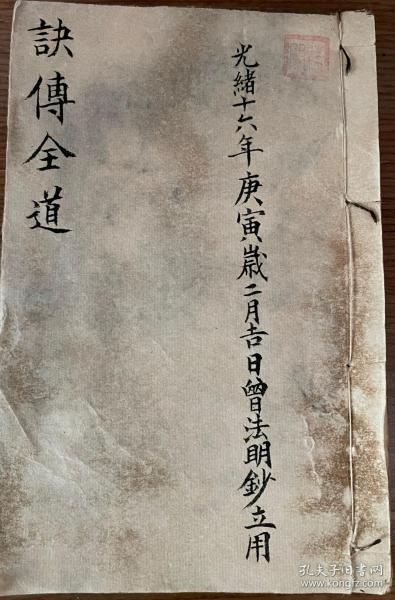 光緒十六年庚寅歲二月吉日曾法明鈔立用
訣傳全道
孔夫子旧书网
www.kongfz.com